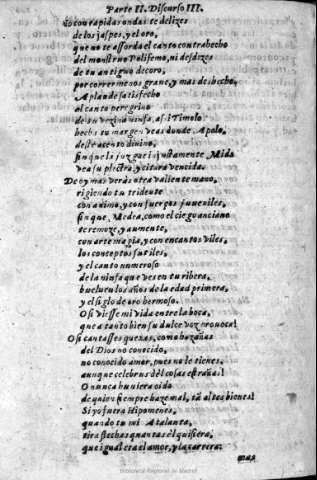 Parte II. Discurso III.
con rapidas ondas te deslizes
de los jaspes, y el oro,
que no te assorda el canto contrahecho
del monstruo Polifemo, ni desdizes
de tu antiguo decoro,
por correr menos grane, y mas deshecho,
Aplaude satisfecho
al canto peregrino
de tu vezina ninfa, assi Timolo
hecho tu margen veas donde Apolo,
deste acento diuino,
sin que lo juzgue injustamente Mida
vea su plectro, y citara vencida.
De oy mas veràs otra valiente mano,
rigiendo tu tridente
con animo, y con fuerças juueniles,
sin que Medea, como el ciego anciano
te remoze, y aumente,
con arte magia, y con encantos viles,
los conceptos sutiles,
y el canto numeroso
de la ninfa que ves en tu ribera,
bueluen los años de la edad primera,
y el siglo de oro hermoso.
O si viesse mi vida entre la boca,
que a tanto bien su dulce voz prouoca!
O si cantasses quexas, como hazañas
del Dios no conocido,
no conocido amor, pues no le tienes,
aunque celebras del cosas estrañas!
O nunca huuiera oido
de quien siempre haze mal, tã altos bienes!
Si yo fuera Hipomenes,
quando tu mi Atalanta,
tira flechas quantas el quisiera,
que igual era el amor, y la carrera:
mas
Biblioteca Regional de Madrid